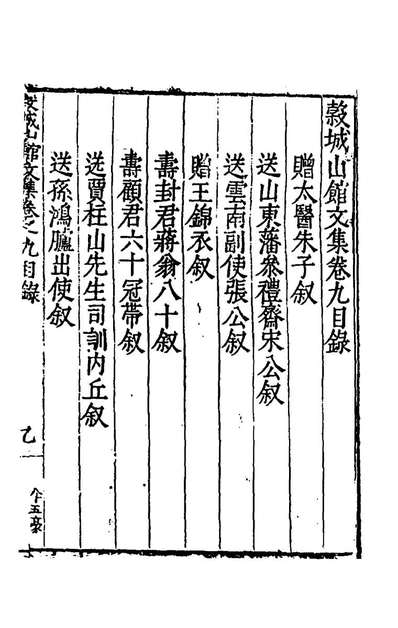 穀城山館文集卷九目錄
贈太醫朱子叙
送山東藩叅禮齋宋公叙
送雲南副使張公叙
贈王錦衣叙
壽封君蔣翁八十叙
壽顧君六十冠帶叙
送賈柱山先生司訓内丘叙
送孫鴻臚出使叙
穀城山館文集卷之九目錄
乙一